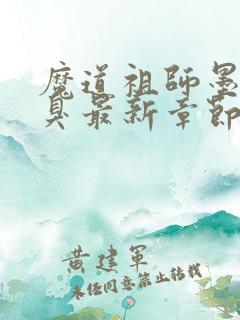 魔道祖師墨
臭最新章節
黄建軍
未经同意禁止转载